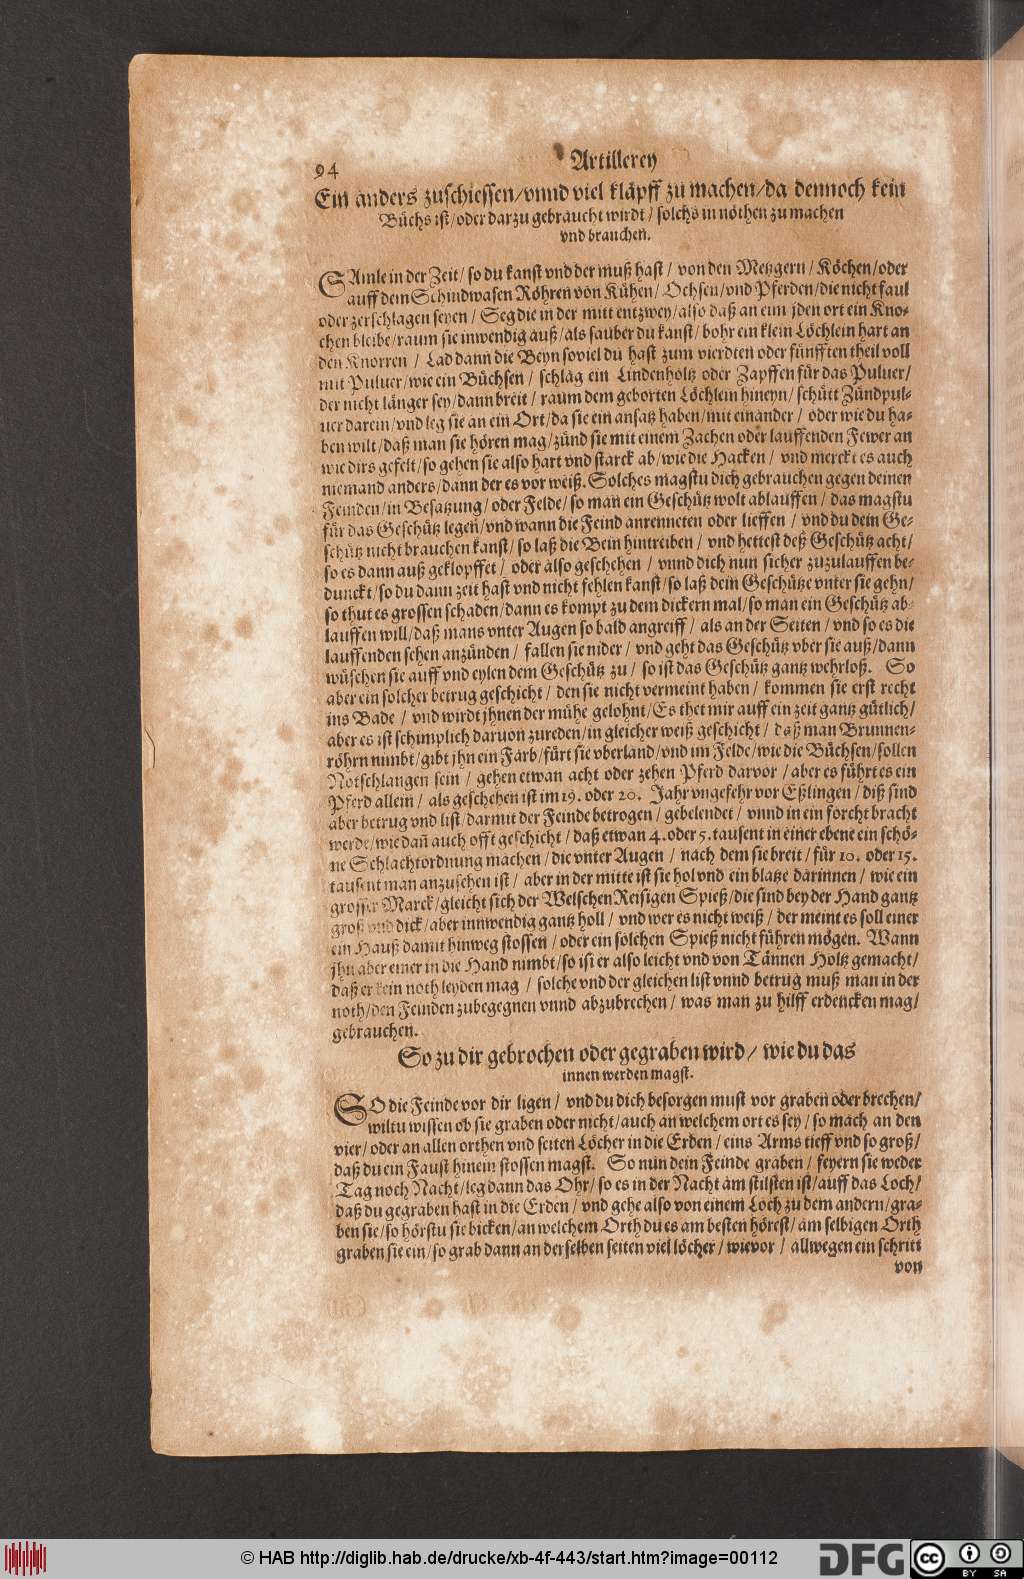 94
Artillerey
Ein anders zuschiessen/vnnd viel kläpff zu machen/da dennoch kein
Büchs ist/oder darzu gebraucht wirdt/solchs in nöthen zu machen
vnd brauchen.
SAmle in der Zeit/so du kanst vnd der muß hast/von den Metzgern/Köchen/oder
auff dem Schindwasen Röhren von Kühen/Ochsen/vnd Pferden/die nicht faul
oder zerschlagen seyen/Seg die in der mitt entzwey/also daß an eim jden ort ein Kno-
chen bleibe/raum sie inwendig auß/als sauber du kanst/bohr ein klein Löchlein hart an
den Knorren/Lad dann die Beyn soviel du hast zum vierdten oder fünfften theil voll
mit Puluer/wie ein Büchsen/schlag ein Lindenholtz oder Zapffen für das Puluer/
der nicht länger sey/dann breit/raum dem geborten Löchlein hineyn/schütt Zündpul-
uer darein/vnd leg sie an ein Ort/da sie ein ansatz haben/mit einander/oder wie du ha-
ben wilt/daß man sie hören mag/zünd sie mit einem Zachen oder lauffenden Fewer an
wie dirs gefelt/so gehen sie also hart vnd starck ab/wie die Hacken/vnd merckt es auch
niemand anders/dann der es vor weiß. Solches magstu dich gebrauchen gegen deinen
Feinden/in Besatzung/oder Felde/so man ein Geschütz wolt ablauffen/das magstu
für das Geschütz legen/vnd wann die Feind anrenneten oder lieffen/vnd du dein Ge-
schütz nicht brauchen kanst/so laß die Bein hintreiben/vnd hettest deß Geschütz acht/
so es dann auß geklopffet/oder also geschehen/vnnd dich nun sicher zuzulauffen be-
dunckt/so du dann zeit hast vnd nicht fehlen kanst/so laß dein Geschütze vnter sie gehn/
so thut es grossen schaden/dann es kompt zu dem dickern mal/so man ein Geschütz ab-
lauffen will/daß mans vnter Augen so bald angreiff/als an der Seiten/vnd so es die
lauffenden sehen anzünden/fallen sie nider/vnd geht das Geschütz vber sie auß/dann
wüschen sie auff vnd eylen dem Geschütz zu/so ist das Geschütz gantz wehrloß. So
aber ein solcher betrug geschicht/den sie nicht vermeint haben/kommen sie erst recht
ins Bade/vnd wirdt jhnen der mühe gelohnt/Es thet mir auff ein zeit gantz gütlich/
aber es ist schimplich daruon zureden/in gleicher weiß geschicht/daß man Brunnen-
röhrn nimbt/gibt jhn ein Farb/fürt sie vberland/vnd im Felde/wie die Büchsen/sollen
Notschlangen sein/gehen etwan acht oder zehen Pferd darvor/aber es führt es ein
Pferd allein/als geschehen ist im 19. oder 20. Jahr vngefehr vor Eßlingen/diß sind
aber betrug vnd list/darmit der Feinde betrogen/gebelendet/vnnd in ein forcht bracht
werde/wie dañ auch offt geschicht/daß etwan 4. oder 5. tausent in einer ebene ein schö-
ne Schlachtordnung machen/die vnter Augen/nach dem sie breit/für 10. oder 15.
tausent man anzusehen ist/aber in der mitte ist sie hol vnd ein blatze darinnen/wie ein
grosser Marck/gleicht sich der Welschen Reisigen Spieß/die sind bey der Hand gantz
groß vnd dick/aber innwendig gantz holl/vnd wer es nicht weiß/der meint es soll einer
ein Hauß damit hinweg stossen/oder ein solchen Spieß nicht führen mögen. Wann
jhn aber einer in die Hand nimbt/so ist er also leicht vnd von Tännen Holtz gemacht/
daß er kein noth leyden mag/solche vnd der gleichen list vnnd betrug muß man in der
noth/den Feinden zubegegnen vnnd abzubrechen/was man zu hilff erdencken mag/
gebrauchen.
So zu dir gebrochen oder gegraben wird/wie du das
innen werden magst.
SO die Feinde vor dir ligen/vnd du dich besorgen must vor graben oder brechen/
wiltu wissen ob sie graben oder nicht/auch an welchem ort es sey/so mach an den
vier/oder an allen orthen vnd seiten Löcher in die Erden/eins Arms tieff vnd so groß/
daß du ein Faust hinein stossen magst. So nun dein Feinde graben/feyern sie weder
Tag noch Nacht/leg dann das Ohr/so es in der Nacht am stilsten ist/auff das Loch/
daß du gegraben hast in die Erden/vnd gehe also von einem Loch zu dem andern/gra-
ben sie/so hörstu sie bicken/an welchem Orth du es am besten hörest/am selbigen Orth
graben sie ein/so grab dann an derselben seiten viel löcher/wie vor/allwegen ein schritt
von
© HAB http://diglib.hab.de/drucke/xb-4f-443/start.htm?image=00112
DFG
cc
BY SA